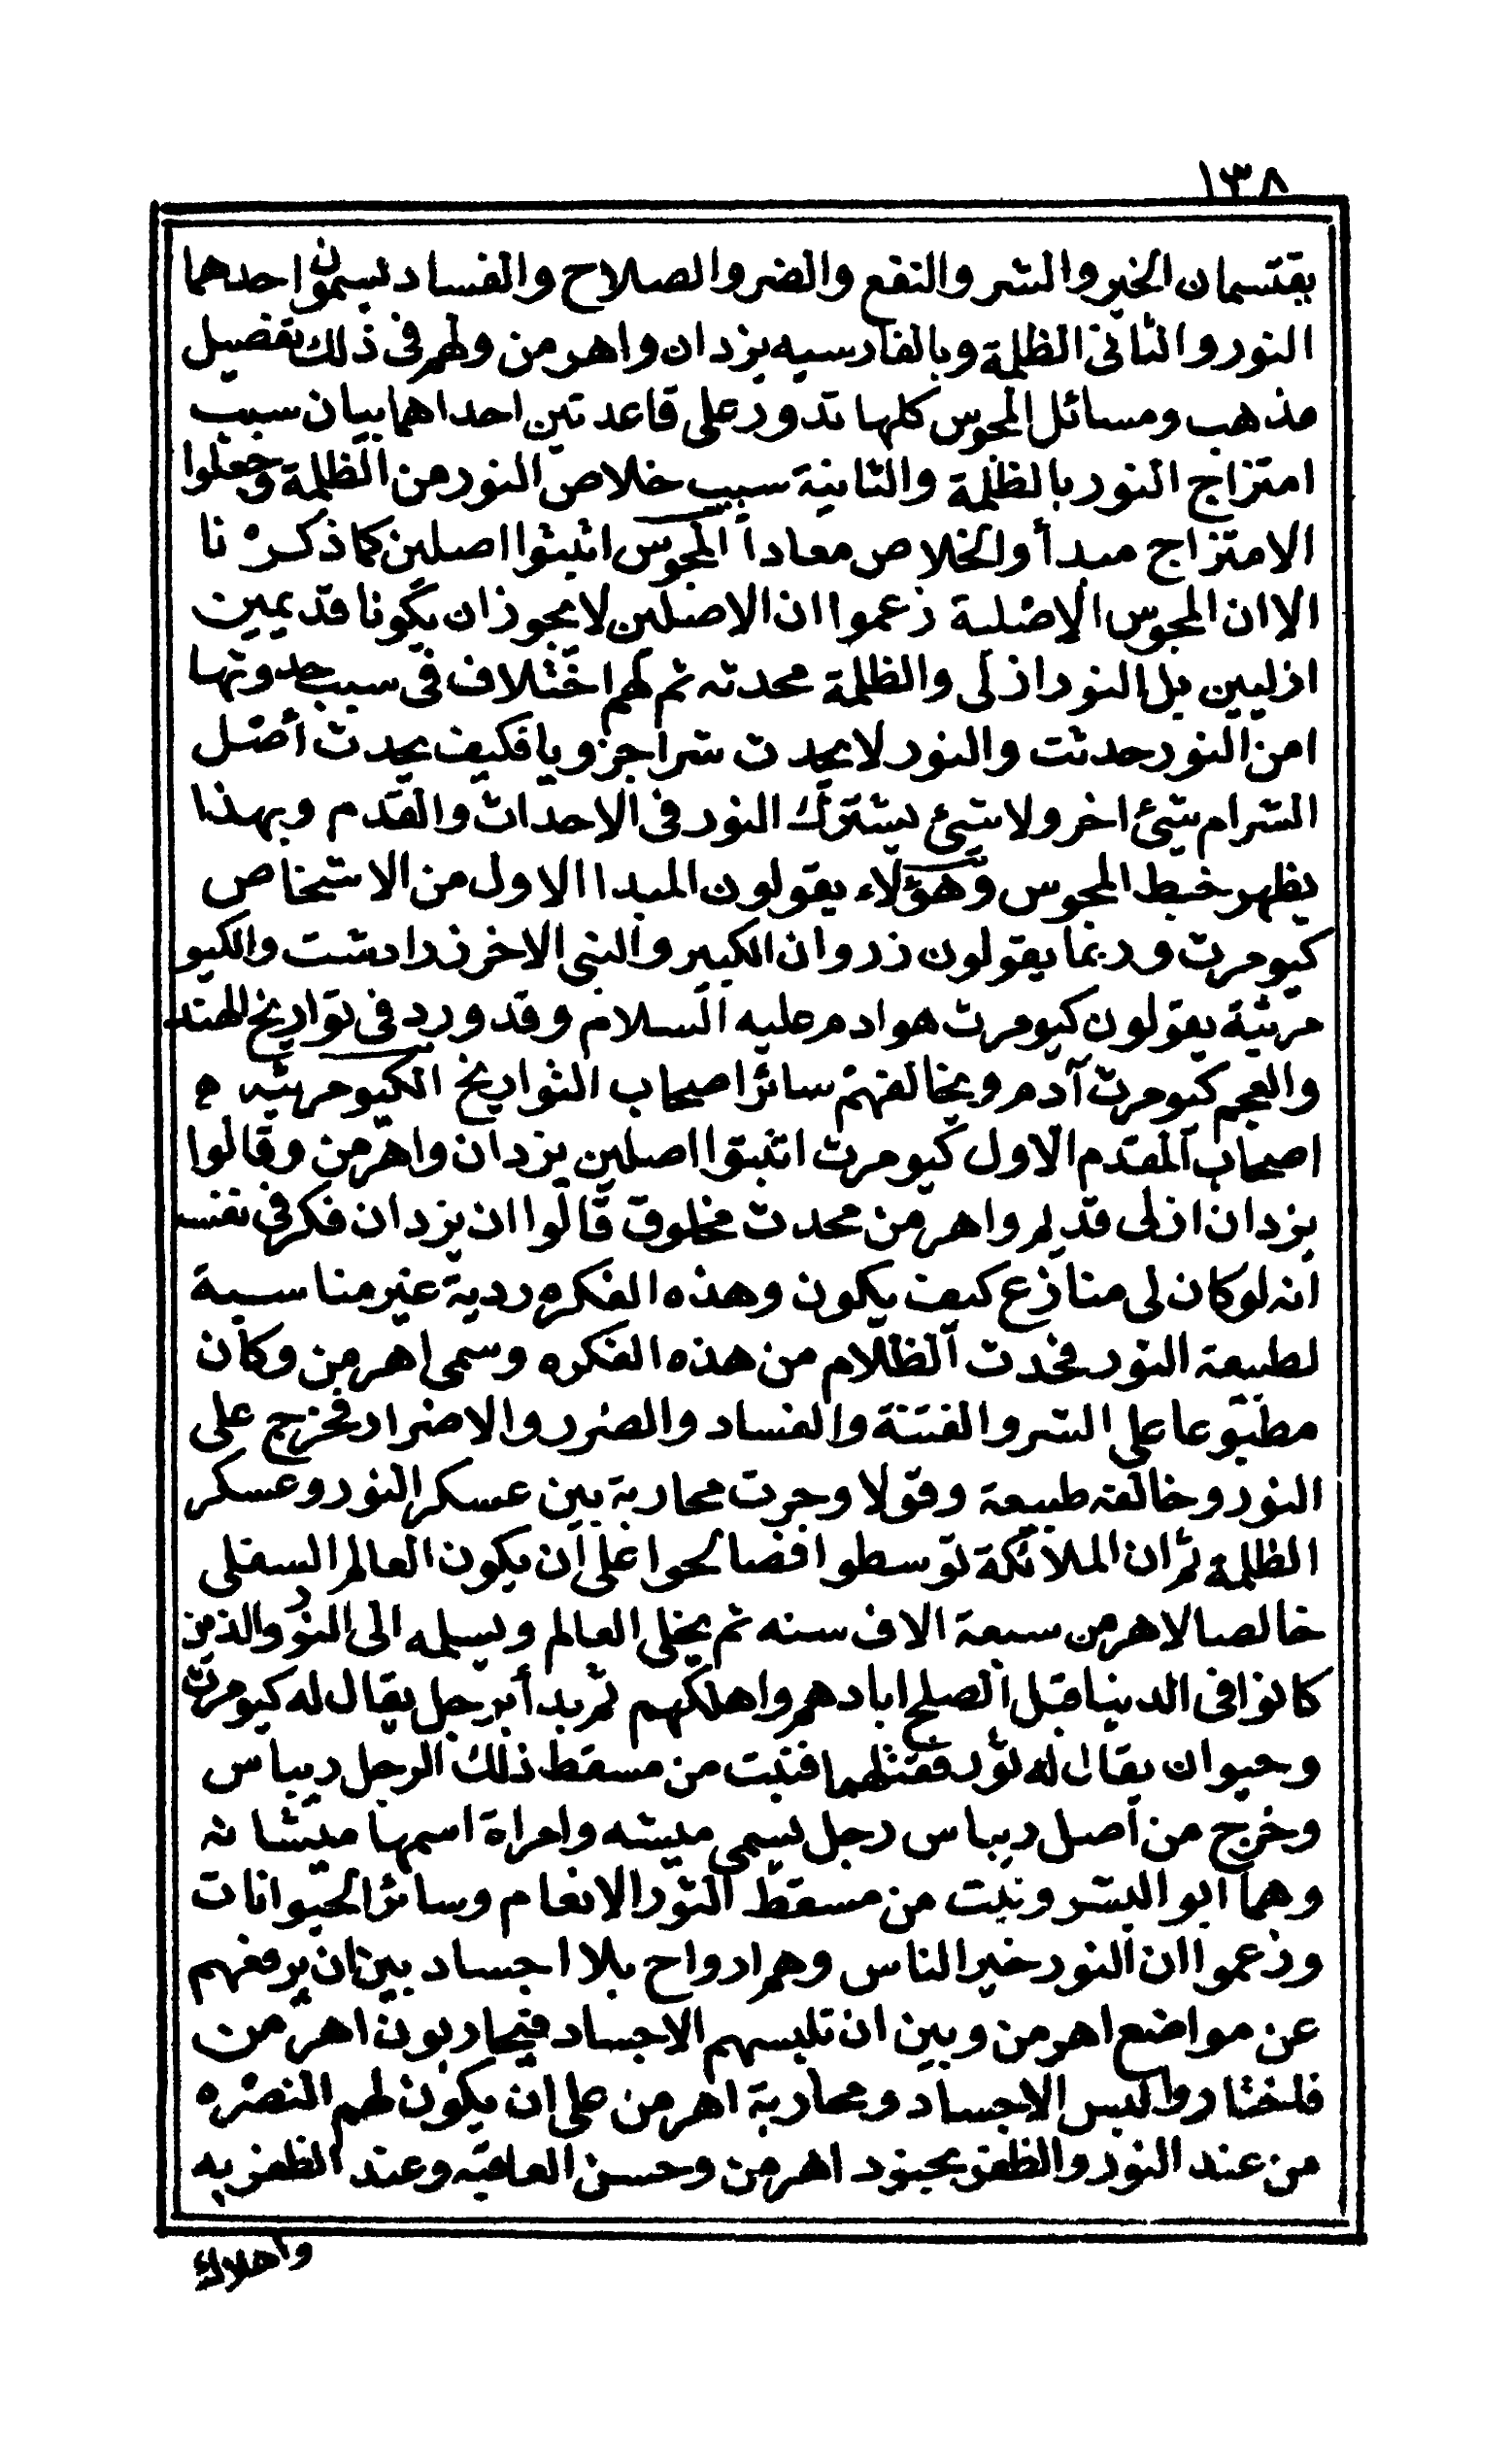 ١٣٨
يقتسمان الخير والشر والنفع والضر والصلاح والفساد يسمون احدهما
النور والثانى الظلمة وبالفارسيه يزدان واهرمن ولهم فى ذلك تفصيل
مذهب ومسائل المجوس كلها تدور على قاعدتين احداهما بيان سبب
امتزاج النور بالظلمة والثانية سبب خلاص النور من الظلمة وجعلوا
الامتزاج مبدأ والخلاص معاداً المجوس اثبثوا اصلين كما ذكرنا
الا ان المجوس الاصلية زعموا ان الاصلين لا يجوز ان يكونا قديمين
ازليين بل النور ازلى والظلمة محدثه ثم لهم اختلاف فى سبب حدوثها
امن النور حدثت والنور لا يحدث شراجزويا فكيف يحدث أصل
الشر ام شئ اخر ولا شئ يشترك النور فى الاحداث والقدم وبهذا
يظهر خبط المجوس وهؤلاء يقولون المبدا الاول من الاشخاص
كيومرت وربما يقولون زروان الكبير والنبى الاخر زرادشت والكيو
مرثية يقولون كيومرت هو ادم عليه السلام وقد ورد فى تواريخ الهند
والعجم كيومرت آدم ويخالفهم سائر اصحاب التواريخ الكيومرثيه ه
اصحاب المقدم الاول كيومرت اثبتوا اصلين يزدان واهرمن وقالوا
يزدان ازلى قديم واهرمن محدث مخلوق قالوا ان يزدان فكر فى نفسه
انه لو كان لى منازع كيف يكون وهذه الفكره ردية غير مناسبة
لطبيعة النور فحدث الظلام من هذه الفكره وسمى اهرمن وكان
مطبوعا على الشر والفتنة والفساد والضرر والاضرار فخرج على
النور وخالفه طبيعة وقولا وجرت محاربة بين عسكر النور وعسكر
الظلمة ثم ان الملائكة توسطوا فصالحوا على ان يكون العالم السفلى
خالصا لاهرمن سبعة الاف سنه ثم يخلى العالم ويسلمه الى النور والذين
كانوا فى الدينا قبل الصلح ابادهم واهلكهم ثم بدأ برجل يقال له كيومرت
وحيوان يقال له ثور فقتلهما فنبت من مسقط ذلك الرجل ريباس
وخرج من اصل ريباس رجل يسمى ميشه وامراة اسمها ميشانه
وهما ابوا البشر ونبت من مسقط الثور الانعام وسائر الحيوانات
وزعموا ان النور خير الناس وهم ارواح بلا اجساد بين ان يرفعهم
عن مواضع اهرمن وبين ان تلبسهم الاجساد فيحاربون اهرمن
فلختاروا لبس الاجساد ومحاربة اهرمن على ان يكون لهم النصره
من عند النور والظفر بجنود اهرمن وحسن العاقبه وعند الظفر به
واهلاك